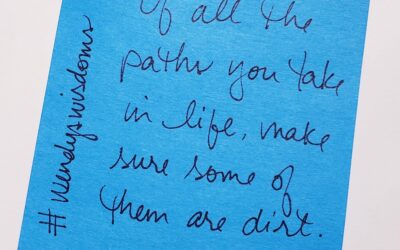 Of all the
paths you take
in life, make
sure some of
them are dirt.
#wendyswisdoms